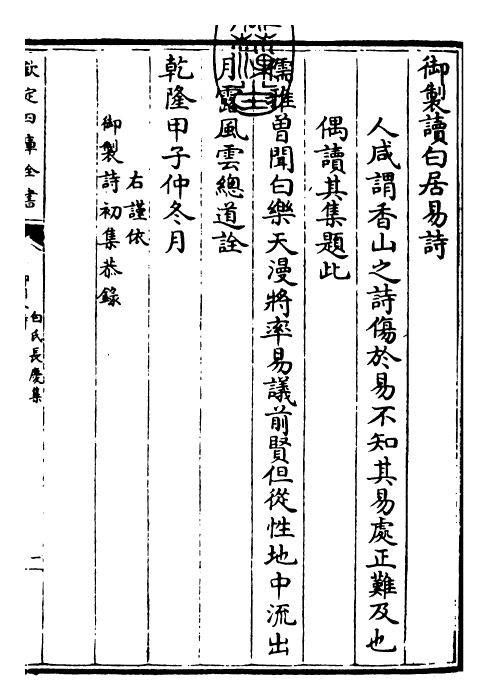 御製讀白居易詩
人咸謂香山之詩傷於易不知其易處正難及也
偶讀其集題此
儒雅曽聞白樂天漫將率易議前賢但從性地中流出
月露風雲總道詮
乾隆甲子仲冬月
右謹依
御製詩初集恭錄
欽定四庫全書
白氏長慶集
二